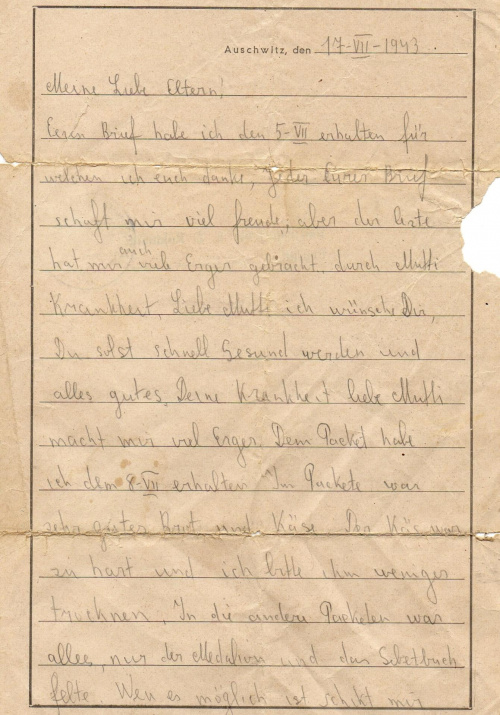 Auschwitz, den 17-VII-1943
Meine Liebe Eltern!
Euren Brief habe ich den 5-VII erhalten für
welchen ich euch danke, jeder Eurer Brief
schaft mir viel freude, aber der lezte
hat mir auch viel Erger gebracht durch Mutti
Krankheit. Liebe Mutti ich wünsche Dir,
Du solst schnell Gesund werden und
alles gutes. Deine Krankheit liebe Mutti
macht mir viel Erger. Dem Packet habe
ich dem 8-VII erhalten Im Packete war
sehr gutes Brot und Käse. Der Käs war
zu hart und ich bitte ihm weniger
trocknen. In die andere Packeten war
alles, nur der Medalion und das
felte. Wen es möglich ist schikt mir